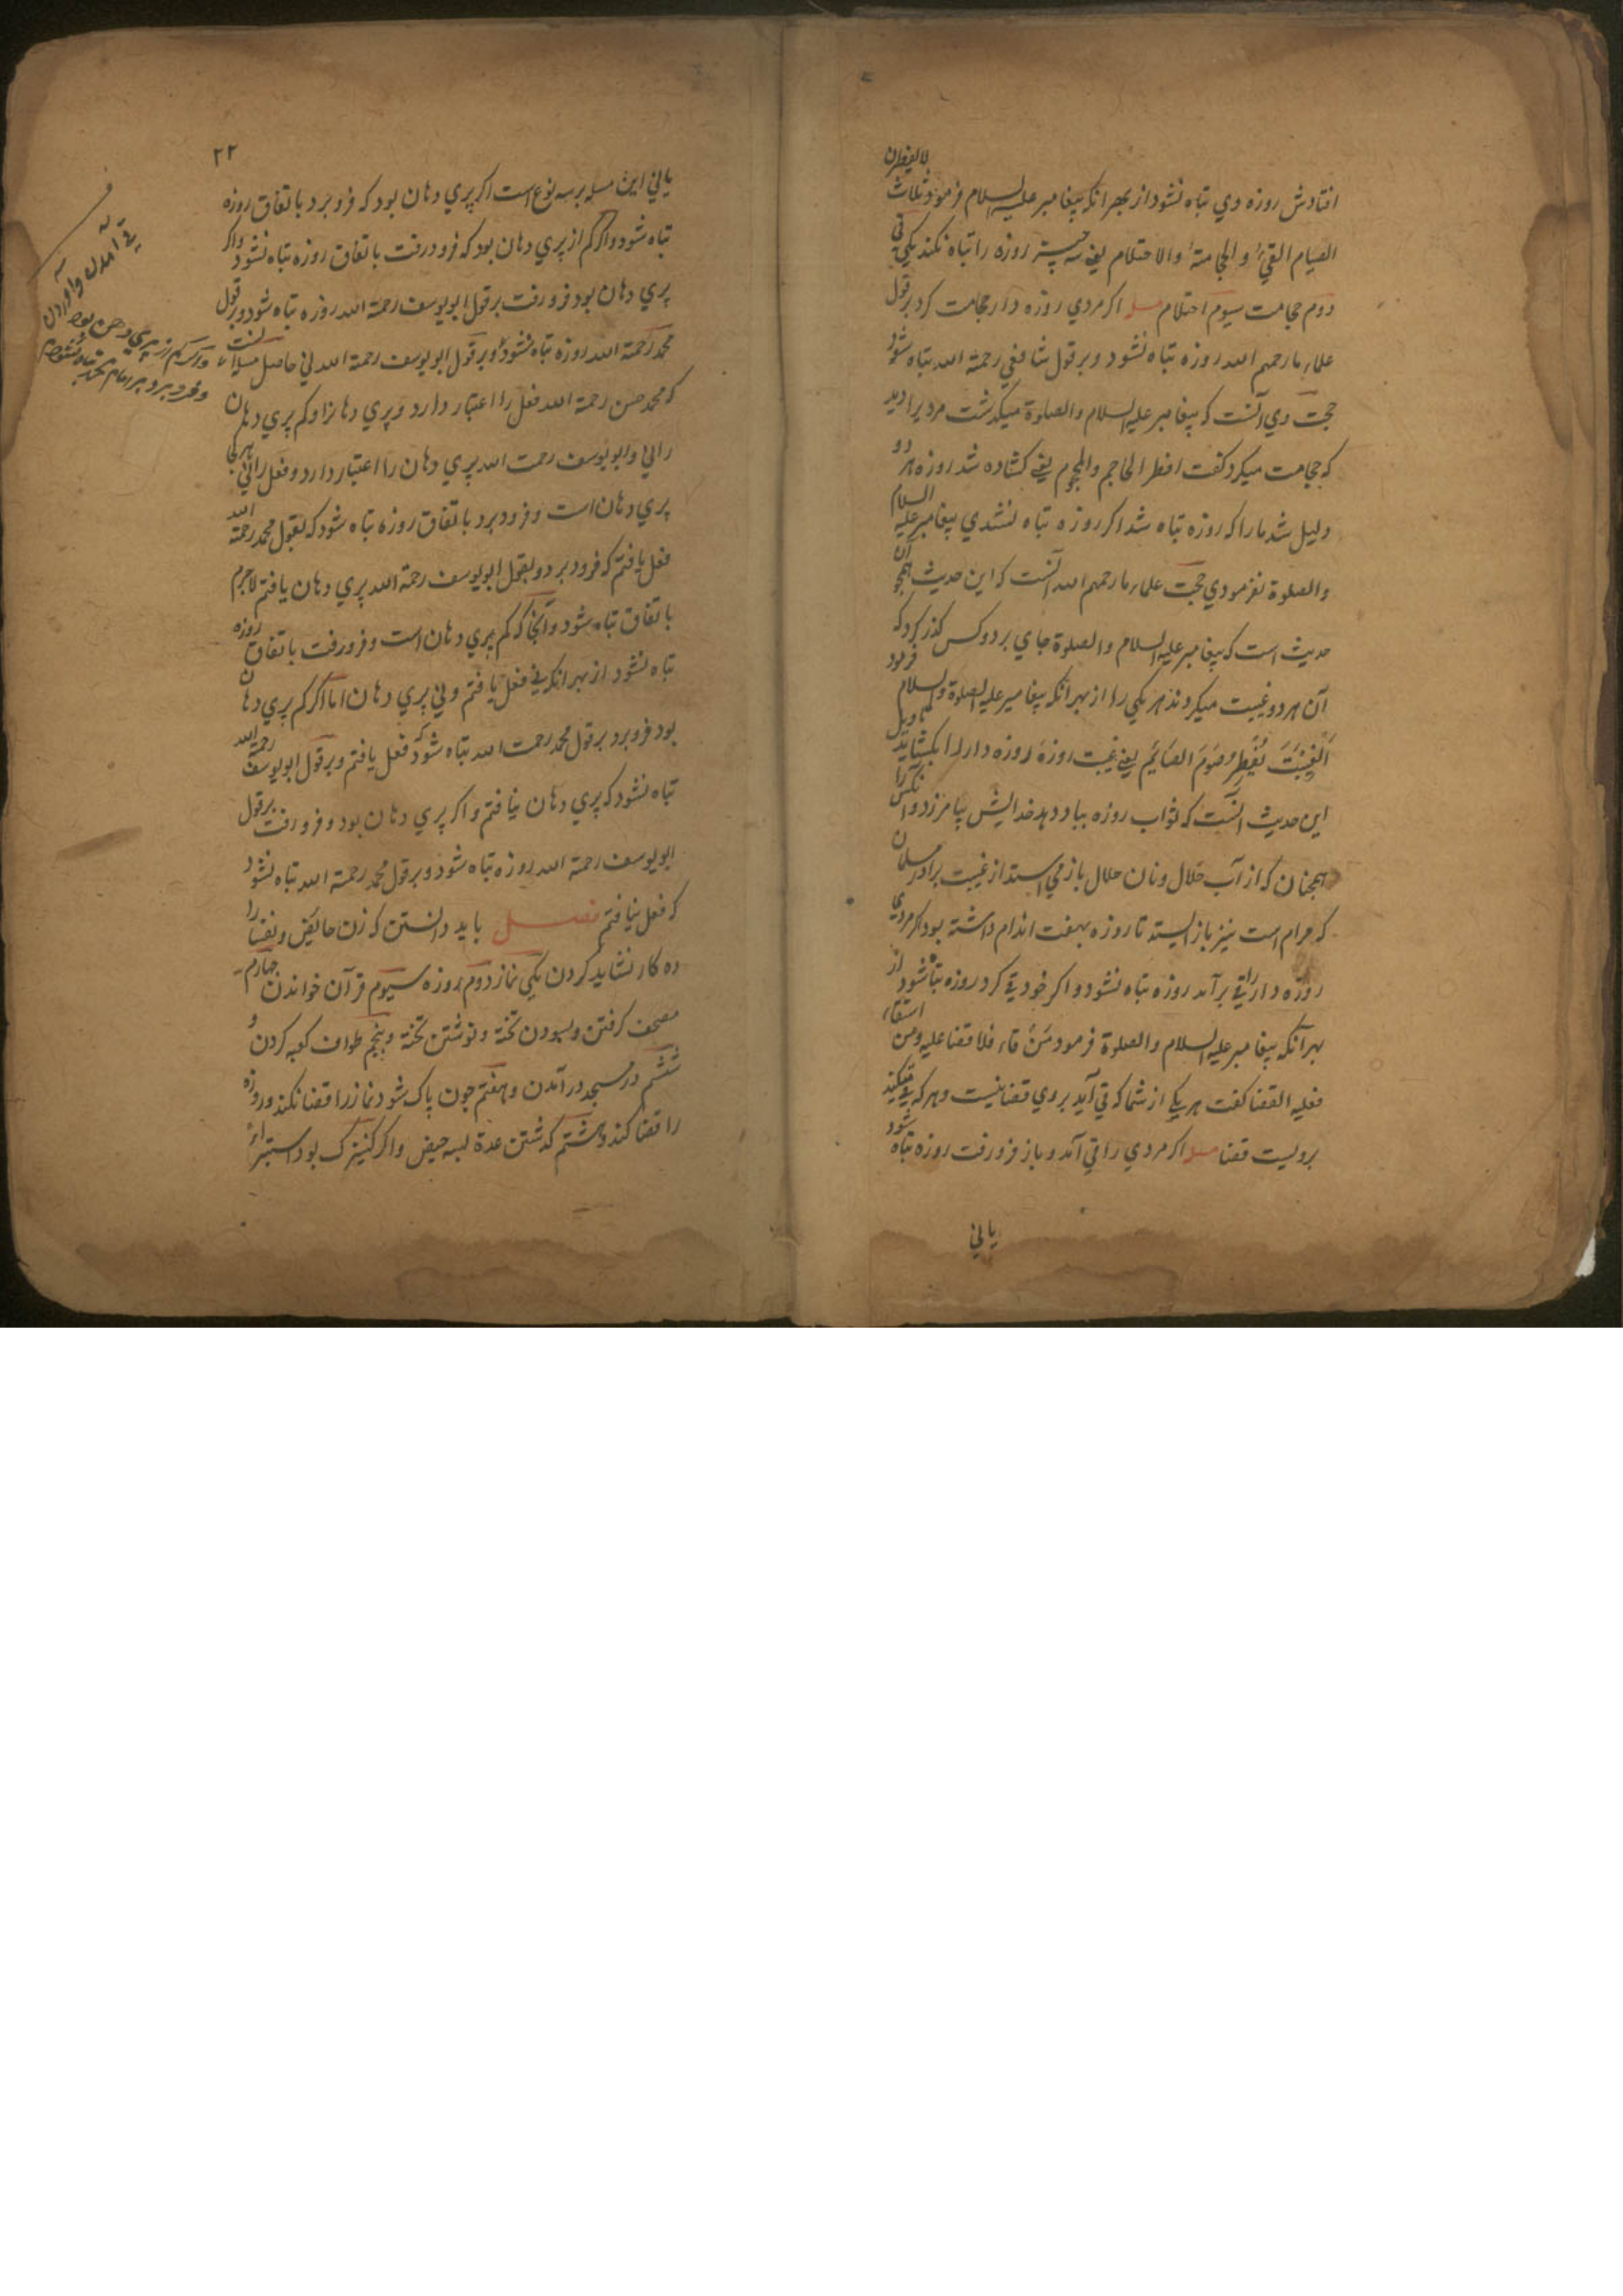 افتادش روزه وي تباه نشود از بهر انکه پیغامبر علیه السلام فرمود ثلاث لا یفطرن
الصیام القيء و الحجامة و الاحتلام یعني سه چیز روزه را تباه نکند یکي قي
دوم حجامت سیوم احتلام مسله اکر مردي روزه دار حجامت کرد بر قول
علماء ما رحمهم الله روزه تباه نشود و بر قول شافعي رحمة الله تباه شود
حجت وي آنست که پیغامبر علیه السلام والصلوة میکدشت مردیرا دید
که حجامت میکرد کفت افطر الحاجم والمحجوم یعني کشاده شد روزه هر دو
دلیل شد ما را که روزه تباه شد اکر روزه تباه نشدي پیغامبر علیه السلام
والصلوة نفرمودي حجت علماء ما رحمهم الله آنست که این حدیث همچو آن
حدیث است که پیغامبر علیه السلام والصلوة جاي بر دو کس کذر کرد که
آن هر دو غیبت میکردند هر یکي را از بهر انکه پیغامبر علیه الصلوة والسلام فرمود
الغیبت تفطر صوم الصایم یعني غیبت روزه روزه دار را بکشاید تاویل
این حدیث آنست که ثواب روزه بباد دهد خدایش بیامرزد و انکس را
همچنان که از آب حلال و نان حلال باز مي استد از غیبت برادر مسلمان
که حرام است نیز باز ایستد تا روزه بهفت اندام داشته بود اکر مردي
روزه دار را قي بر آمد روزه تباه نشود و اکر خود قي کرد روزه تباه شود از
بهر آنکه پیغامبر علیه السلام والصلوة فرمود من قاء فلا قضا علیه ومن استقاء
فعلیه القضا کفت هر یکي از شما که قي آید بر وي قضا نیست و هر که قي کند
برویست قضا مسله اکر مردي را قي آمد و باز فرو رفت روزه تباه شود
یا ني
۲۲
یا ني این مسله بر سه نوع است اکر پري دهان بود که فرو برد باتفاق روزه
تباه شود و اکر کم از پري دهان بود که فرو رفت باتفاق روزه تباه نشود و اکر
پري دهان بود فرو رفت بر قول ابو یوسف رحمة الله روزه تباه شود و بر قول
محمد رحمة الله روزه تباه نشود و بر قول ابو یوسف رحمة الله ني حاصل مسله آنست
که محمد حسن رحمة الله فعل را اعتبار دارد و پري دهانرا و کم پري دهان
را ني و ابو یوسف رحمت الله پري دهان را اعتبار دارد و فعل را ني هر کجا
پري دهان است و فرو برد باتفاق روزه تباه شود که بقول محمد رحمة الله
فعل یافتم که فرو برد و بقول ابو یوسف رحمة الله پري دهان یافتم لاجرم
باتفاق تباه شود و آنجا که کم پري دهان است و فرو رفت باتفاق روزه
تباه نشود از بهر انکه ني فعل یافتم و ني پري دهان اما اکر کم پري دهان
بود فرو برد بر قول محمد رحمت الله تباه شود که فعل یافتم و بر قول ابو یوسف رحمة الله
تباه نشود که پري دهان نیافتم و اکر پري دهان بود و فرو رفت بر قول
ابو یوسف رحمة الله روزه تباه شود و بر قول محمد رحمة الله تباه نشود
که فعل نیافتم فصل باید دانستن که زن حائض و نفسا را
ده کار نشاید کردن یکي نماز دوم روزه سیوم قرآن خواندن چهارم
مصحف کرفتن و بسودن تخته و نوشتن تخته و پنجم طواف کعبه کردن و
ششم در مسجد در آمدن و هفتم چون پاک شود نماز را قضا نکند و روزه
را قضا کند و هشتم کدشتن عدة بسه حیض و اکر کنیزک بود استبراء
قي آمدن و آوردن